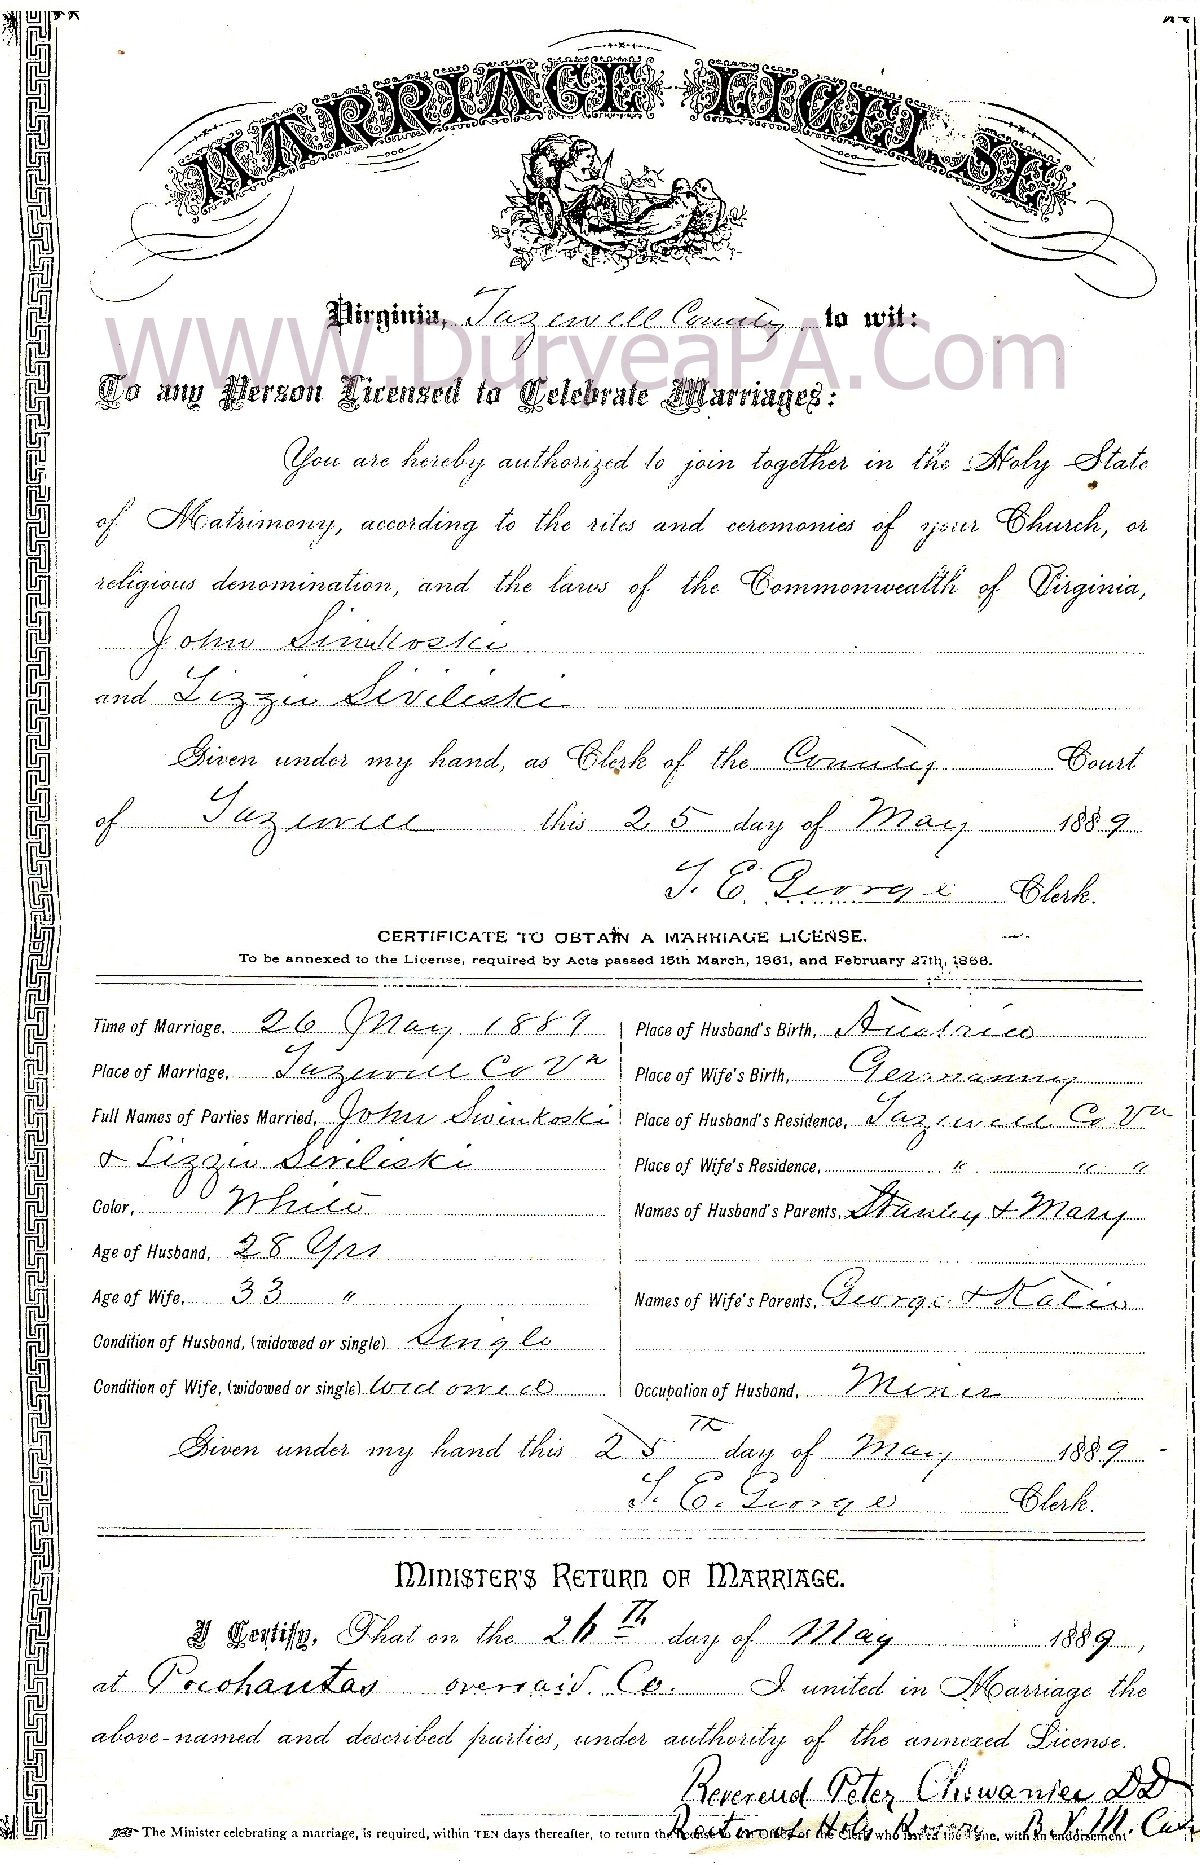 MARRIAGE LICENSE
Virginia, Tazewell County, to wit:
WWW.DuryeaPA.Com
To any Person Licensed to Celebrate Marriages:
You are hereby authorized to join together in the Holy State
of Matrimony, according to the rites and ceremonies of your Church, or
religious denomination, and the laws of the Commonwealth of Virginia,
John Sinkoski
and Lizzie Siviliski
Given under my hand, as Clerk of the County Court
of Tazewell this 25 day of May 1889
T. E. George Clerk.
CERTIFICATE TO OBTAIN A MARRIAGE LICENSE.
To be annexed to the License, required by Acts passed 15th March, 1861, and February 27th, 1866.
Time of Marriage, 26 May 1889
Place of Marriage, Tazewell Co Va
Full Names of Parties Married, John Swinkoski
& Lizzie Siviliski
Color, White
Age of Husband, 28 Yrs
Age of Wife, 33 "
Condition of Husband, (widowed or single) Single
Condition of Wife, (widowed or single) Widowed
Place of Husband's Birth, Austria
Place of Wife's Birth, Germanny
Place of Husband's Residence, Tazewell Co Va
Place of Wife's Residence, " " "
Names of Husband's Parents, Stanley & Mary
Names of Wife's Parents, George & Katie
Occupation of Husband, Miner
Given under my hand this 25th day of May 1889
T. E. George Clerk.
MINISTER'S RETURN OF MARRIAGE.
I Certify, That on the 26th day of May 1889,
at Pocohantas oversaid. Co. I united in Marriage the
above-named and described parties, under authority of the annexed License.
Reverend Peter Chowaniec DD
Rector of Holy Rosary B.V.M. Cath
The Minister celebrating a marriage, is required, within TEN days thereafter, to return the license to the Office of the Clerk who issued the same, with an endorsement